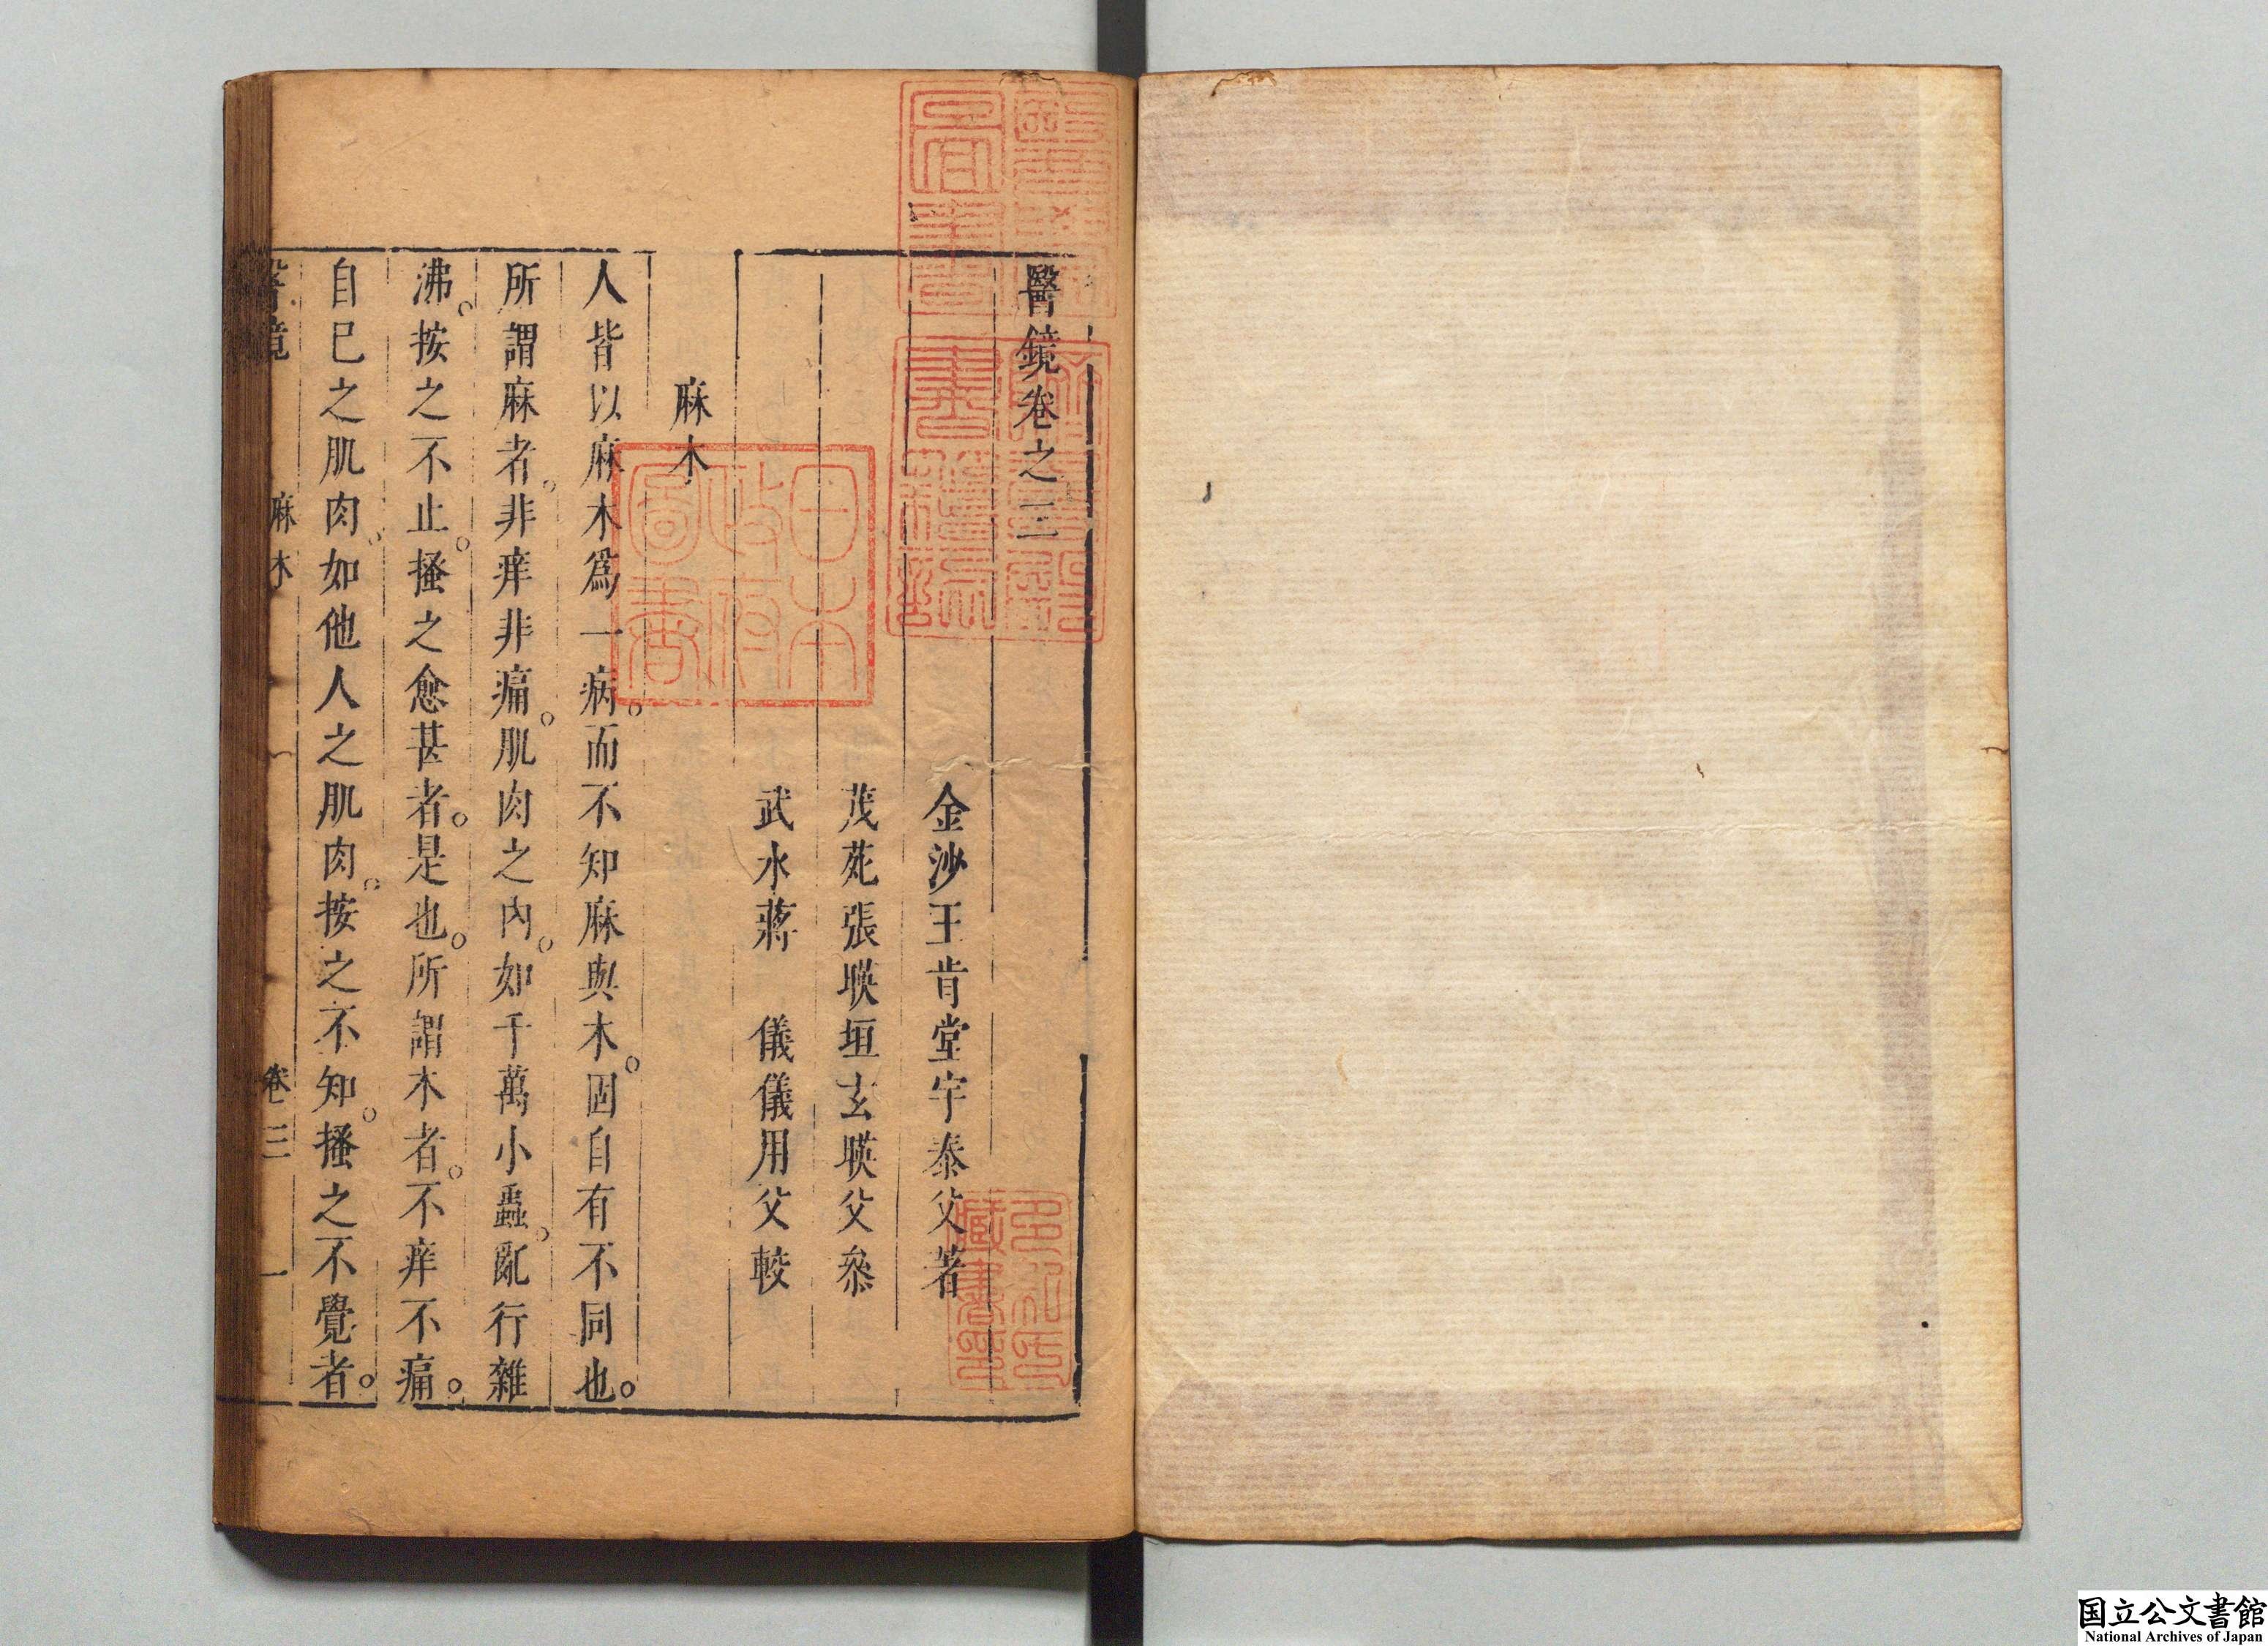 醫鏡卷之三
金沙王肯堂宇泰父著
茂苑張暎垣玄暎父叅
武水蔣　儀儀用父較
麻木
人皆以麻木爲一病。而不知麻與木。固自有不同也。
所謂麻者。非痒非痛。肌肉之內。如千萬小蟲。亂行雜
沸。按之不止。搔之愈甚者。是也。所謂木者。不痒不痛。
自已之肌肉。如他人之肌肉。按之不知。搔之不覺者。
醫鏡　麻木　卷三　一
日本
政府
圖書
多紀氏
藏書印
国立公文書館
National Archives of Japan